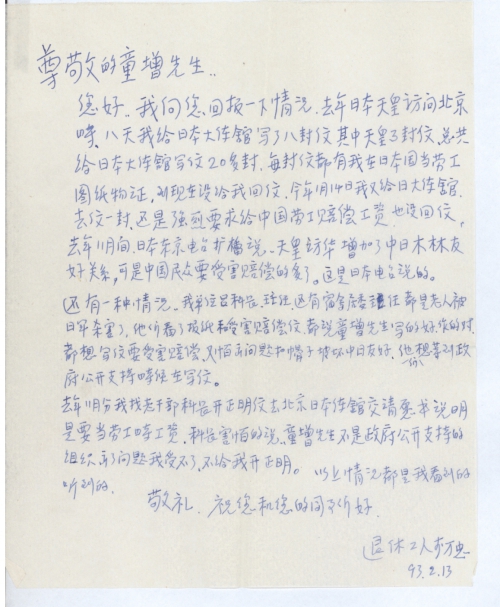 尊敬的童增先生:
您好。我向您回报一下情况。去年日本天皇访问北京
时,八天我给日本大使馆写了八封信其中天皇3封信,总共
给日本大使馆写信20多封。每封信都有我在日本国当劳工
图纸物证,到现在没给我回信。今年1月14日我又给日大使馆
去信一封,还是强烈要求给中国劳工赔偿工资 也没回信,
去年11月间日本东京电台扩播说,天皇访华增加了中日木林友
好关系,可是中国民众要受害赔偿的多了。这是日本电台说的。
还有一种情况。我单位吕科长 还有宿舍 主任 都是老人被
日军杀害了,他们看了报纸和受害赔偿信,都说童增先生写的好,
都想写信要受害赔偿,又怕 问题扣帽子破坏中日友好,他们想等到政
府公开支持时他在写信。
去年 月份我找老干部科吕开正明信去北京日本使馆交请愿书说明
是要当劳工时工资,科长害怕的说,童增先生不是政府公开支持的
组织,出了问题我受不了,不给我开正明。 以上情况都是我看到的
听到的,
敬礼。祝您和您的同 们好。
退休工人 万忠
93.2.13